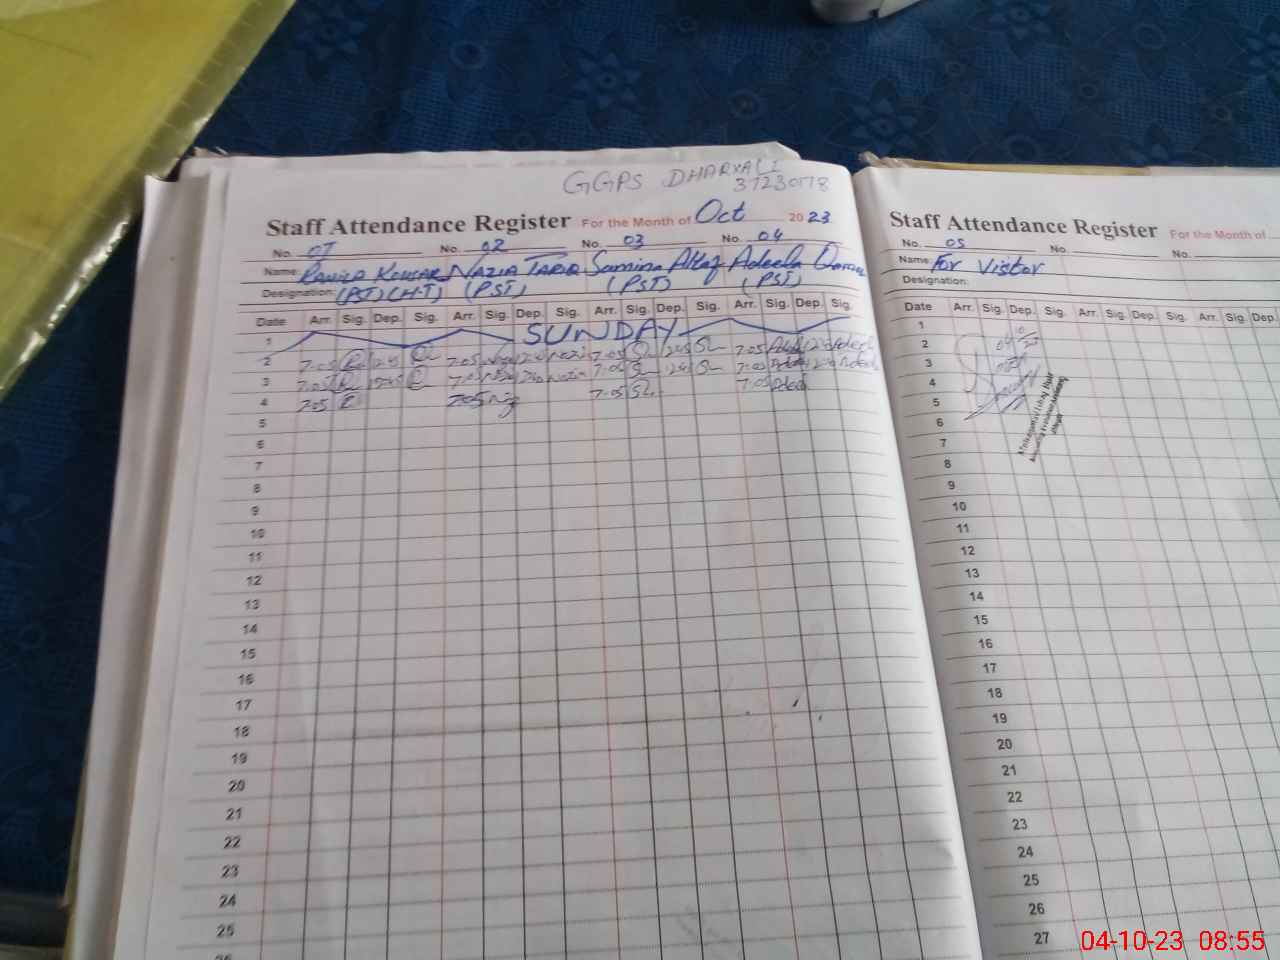 GGPS DHARYALI
37230178
Staff Attendance Register For the Month of Oct 2023
No. 01 No. 02 No. 03 No. 04
Name: Kousar NAZIA TARIQ Samina Altaf Adeela
Designation: (PST) (H-T) (PST) (PST) (PST)
Date Arr. Sig. Dep. Sig. Arr. Sig. Dep. Sig. Arr. Sig. Dep. Sig. Arr. Sig. Dep. Sig.
1 SUNDAY
2 7:05 7:05 7:05 1245 7:05
3 7:05 7:05 7:05 1245 7:00
4 7:05 7:05 7:05 7:05
5
6
7
8
9
10
11
12
13
14
15
16
17
18
19
20
21
22
23
24
25
Staff Attendance Register For the Month of
No. 05 No. No.
Name: For Visitor
Designation:
Date Arr. Sig. Dep. Sig. Arr. Sig. Dep. Sig. Arr. Sig. Dep.
1
2
3
4
5
6
7
8
9
10
11
12
13
14
15
16
17
18
19
20
21
22
23
24
25
26
27
04-10-23 08:55